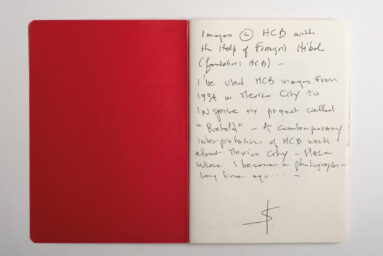 Images © HCB with
the Help of François Hébel
(foundations HCB) –
I've used HCB images from
1934 in Mexico City to
INspire my project called
"Behold" – A contemporary
interpretation of HCB work
about Mexico City – Place
where I became a photographer –
long time ago... –